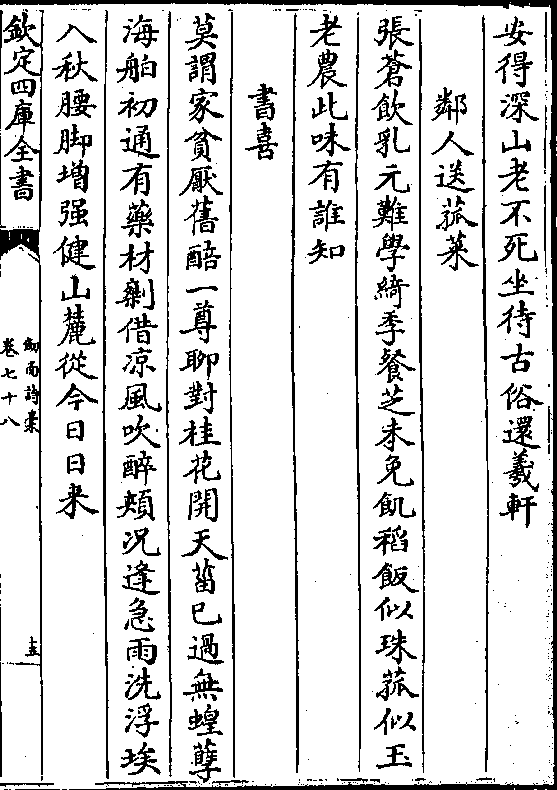 安得深山老不死坐待古俗還羲軒
鄰人送菰菜
張蒼飲乳元難學綺季餐芝未免飢稻飯似珠菰似玉
老農此味有誰知
書喜
莫謂家貧厭舊醅一尊聊對桂花開天菑已過無蝗孽
海舶初通有藥材剩借凉風吹醉頰况逢急雨洗浮埃
入秋腰脚增强健山麓從今日日来
欽定四庫全書
劒南詩稾
卷七十八
十五